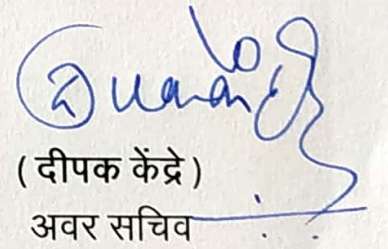 ( दीपक केंद्रे )
अवर सचिव